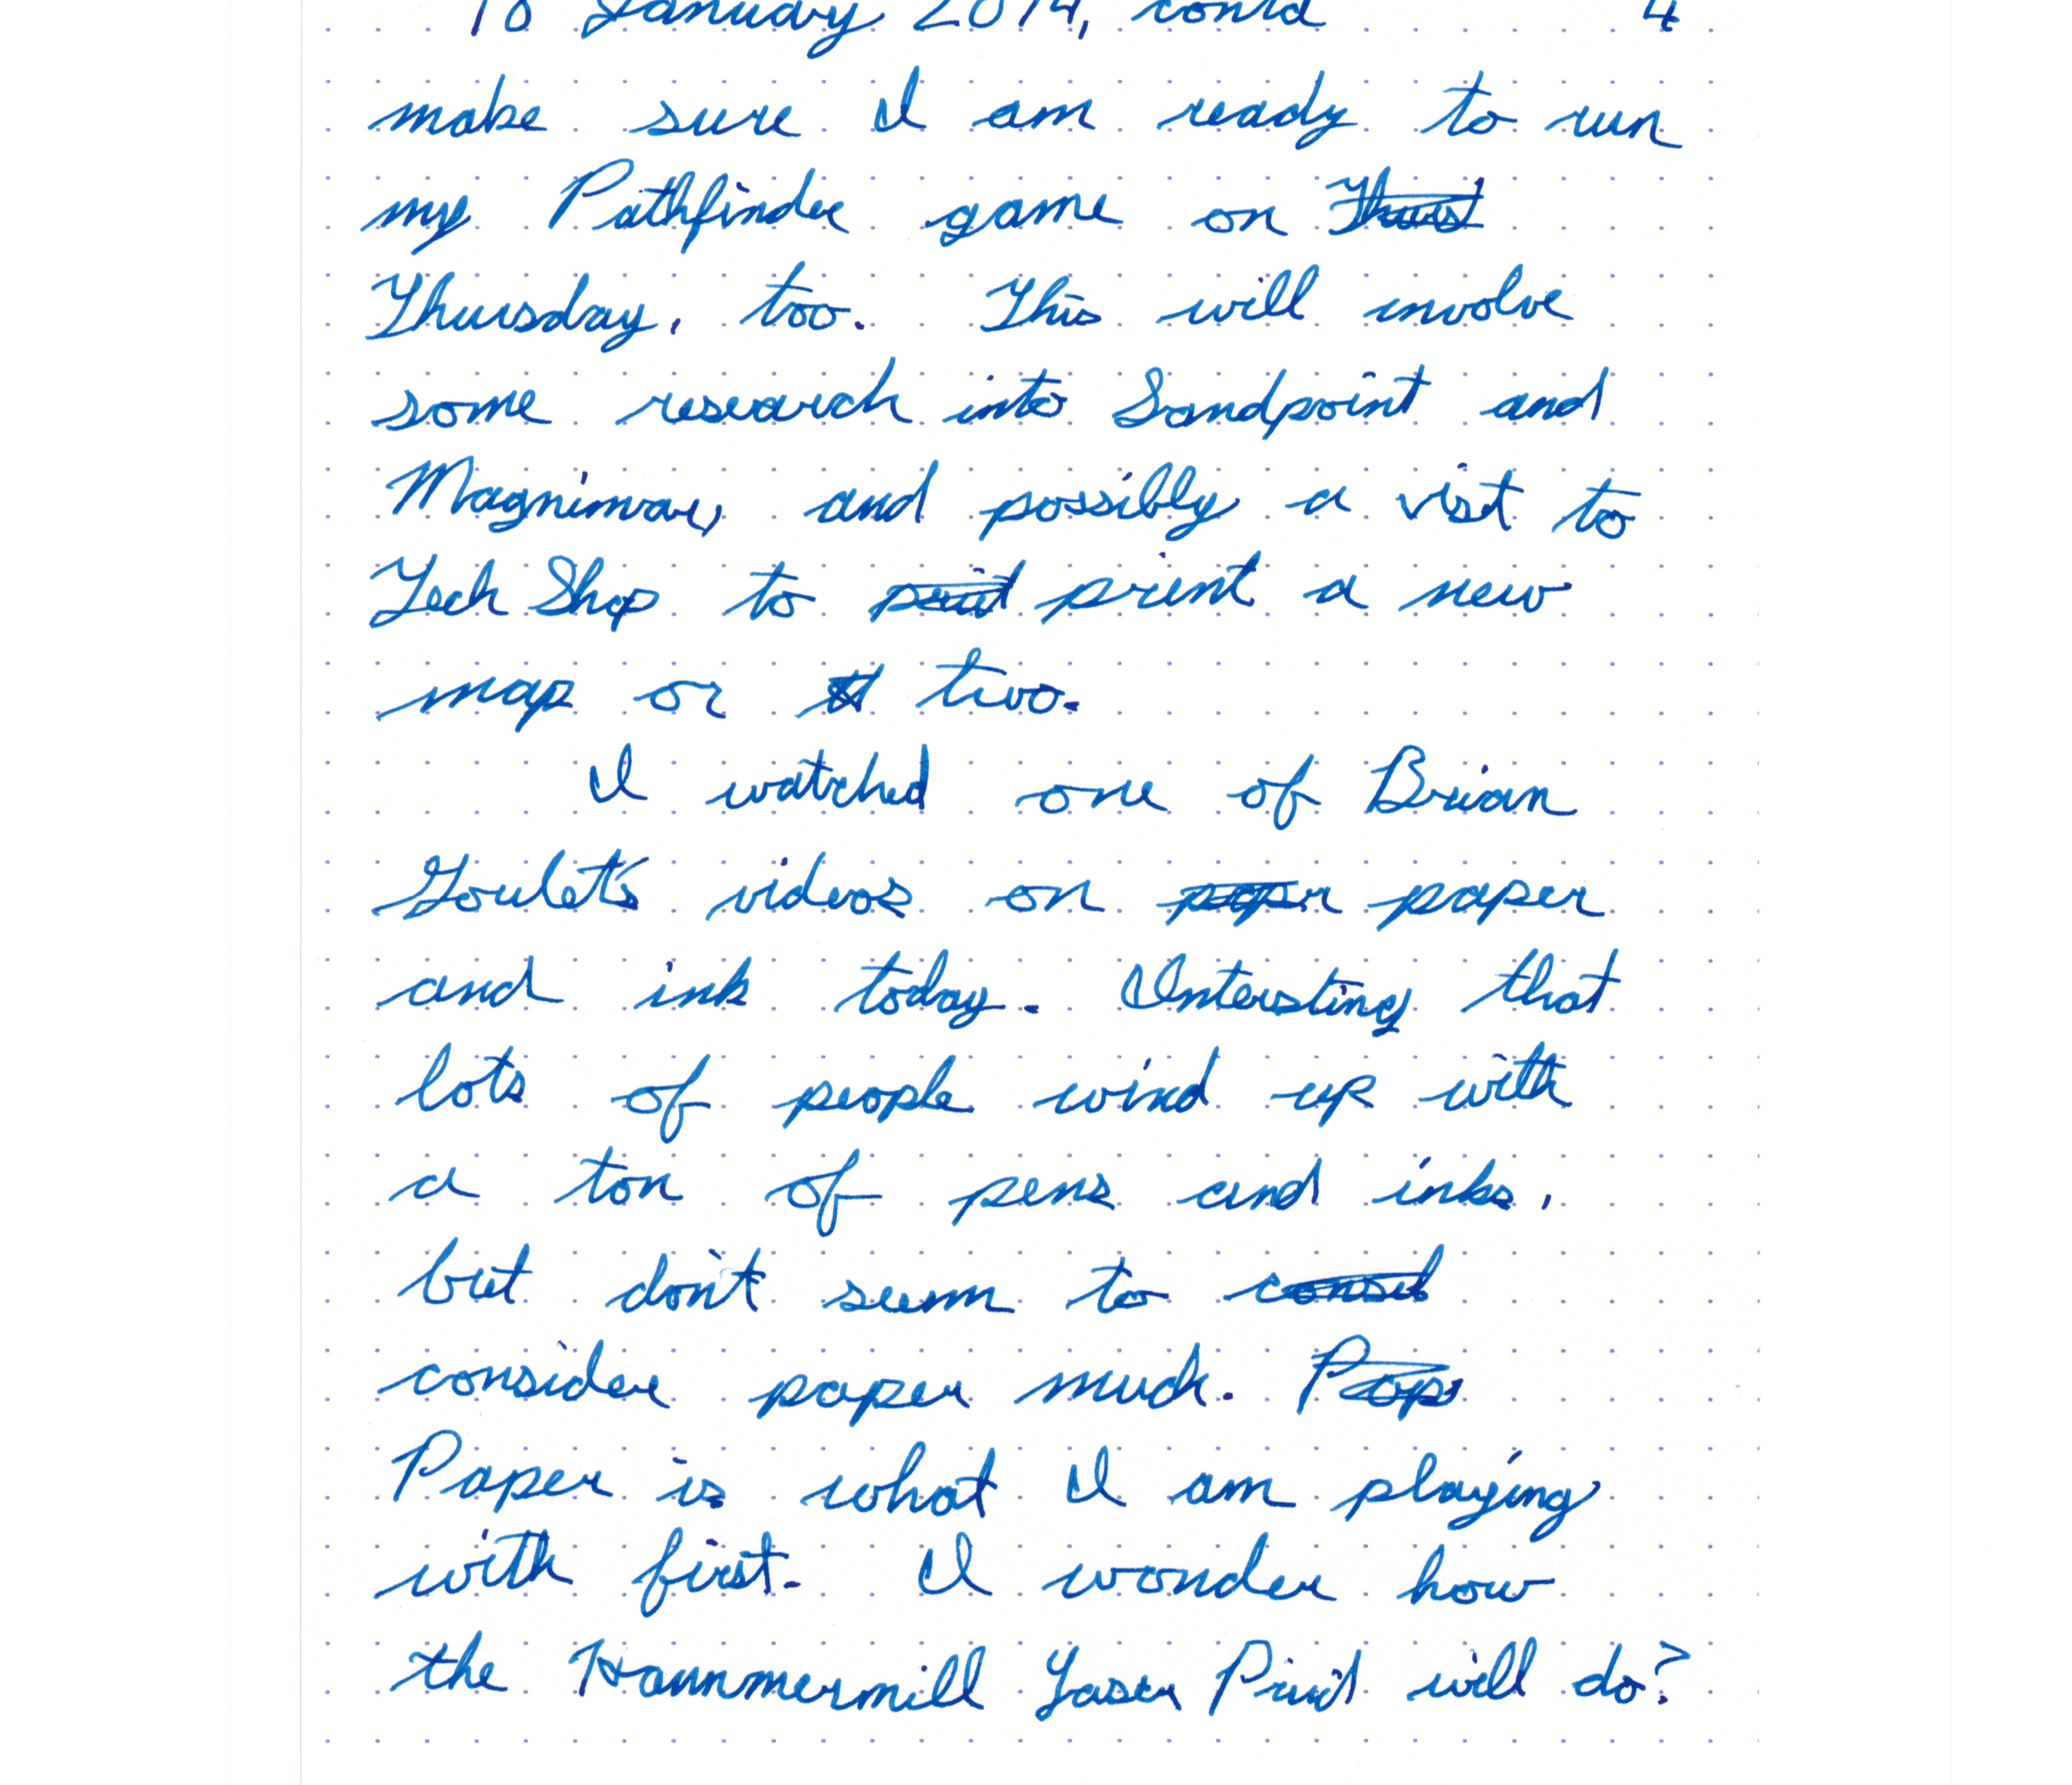 18 January 2014, contd 4
make sure I am ready to run
my Pathfinder game on Thurst
Thursday, too. This will involve
some research into Sandpoint and
Magnimar, and possibly a visit to
Tech Shop to print a new
map or two.
I watched one of Brian
Goulet's videos on paper paper
and ink today. Intersting that
lots of people wind up with
a ton of pens and inks,
but don't seem to consid
consider paper much. Pap
Paper is what I am playing
with first. I wonder how
the Hammermill Laser Print will do?